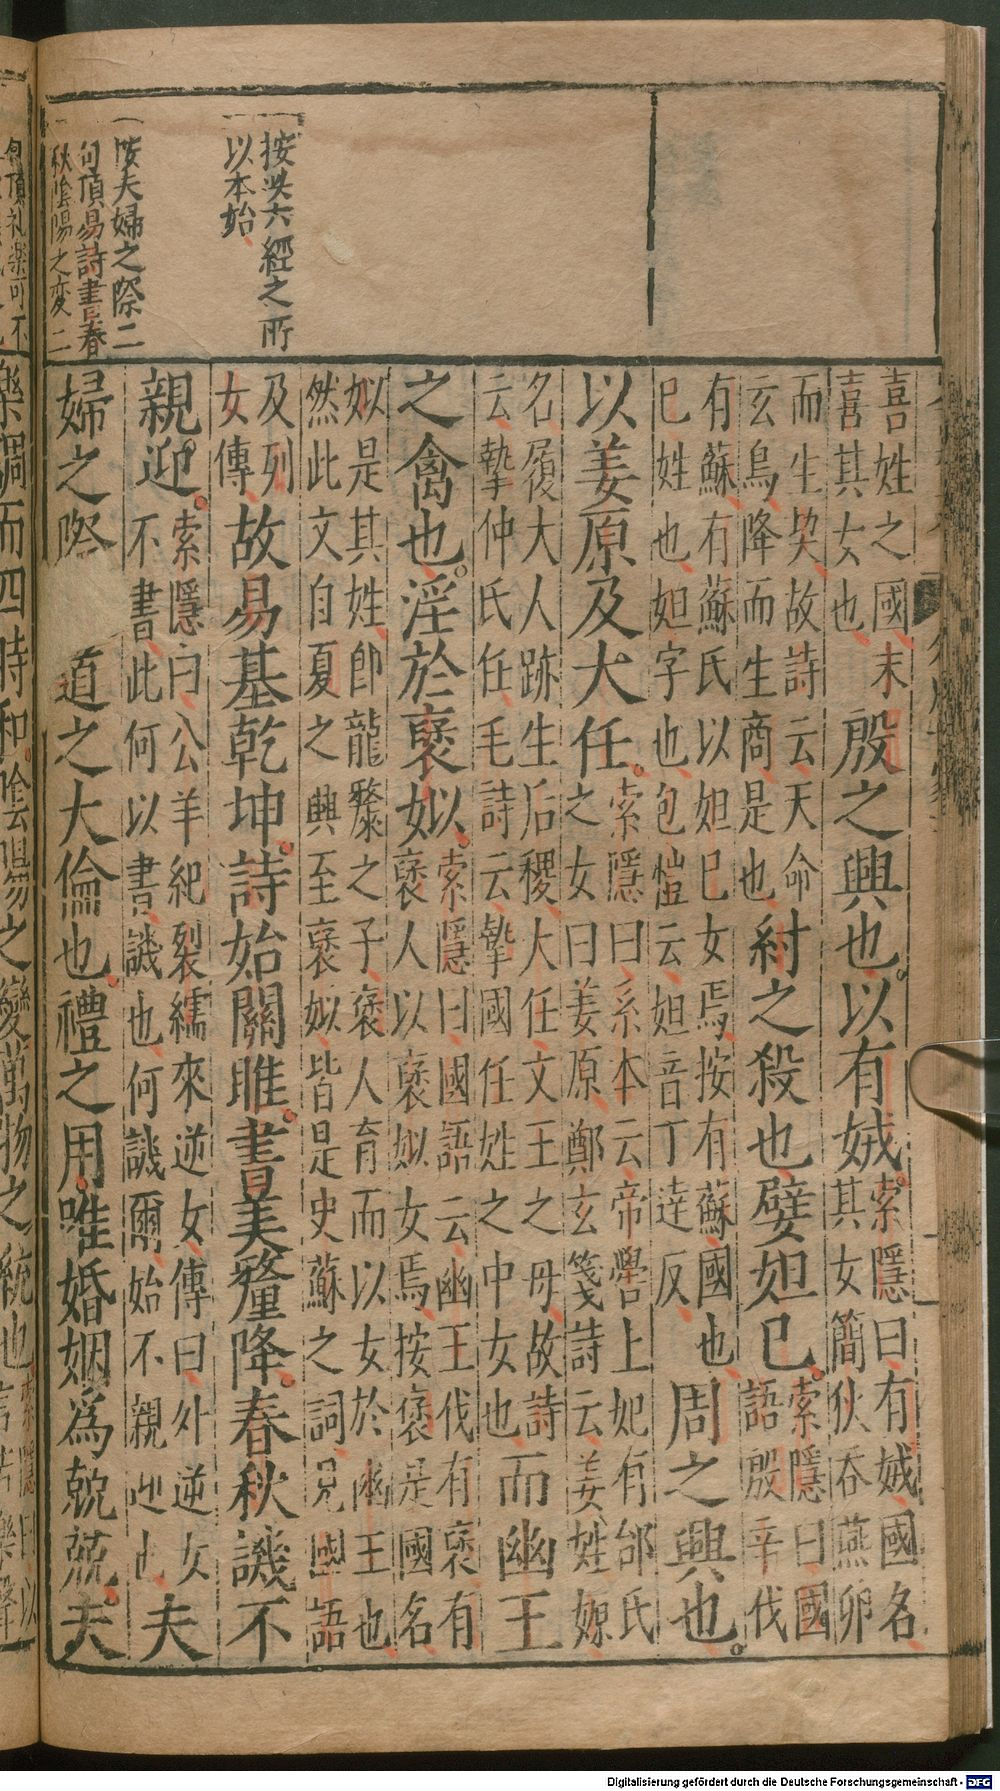 按此六經之所
以本始
按夫婦之際二
句頂易詩書春
秋陰陽之変二
喜姓之國末
喜其女也
殷之興也。以有娀
索隱曰有娀國名
其女簡狄吞燕卵
而生契故詩云天命
玄鳥降而生商是也
紂之殺也嬖妲己。
索隱曰國
語殷辛伐
有蘇有蘇氏以妲己女焉按有蘇國也
己姓也妲字也包愷云妲音丁達反
周之興也。
以姜原及大任。
索隱曰系本云帝嚳上妃有邰氏
之女曰姜原鄭玄箋詩云姜姓嫄
名履大人跡生后稷大任文王之母故詩
云摯仲氏任毛詩云摯國任姓之中女也
而幽王
之禽也。淫於褒姒。
索隱曰國語云幽王伐有褒有
褒人以褒姒女焉按褒是國名
姒是其姓即龍漦之子褒人育而以女於幽王也
然此文自夏之興至褒姒皆是史蘇之詞見國語
及列
女傳
故易基乾坤。詩始關雎。書美釐降。春秋譏不
親迎。
索隱曰公羊紀裂繻來逆女傳曰外逆女
不書此何以書譏也何譏爾始不親迎也
夫
婦之際 道之大倫也。禮之用唯婚姻爲兢兢。夫
句頂礼楽可不
樂調而四時和。陰陽之變萬物之統也
Digitalisierung gefördert durch die Deutsche Forschungsgemeinschaft - DFG